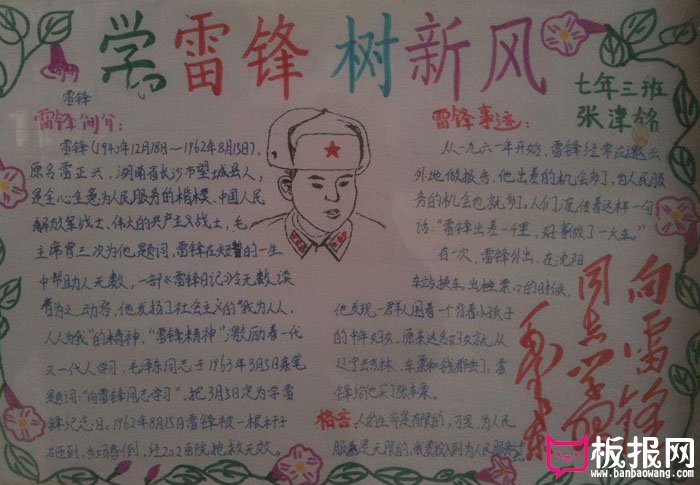 学雷锋 树新风
七年三班
张津铭
雷锋
雷锋简介:
雷锋(1940年12月18日~1962年8月15日),
原名雷正兴,湖南省长沙市望城县人,
是全心全意为人民服务的楷模、中国人民
解放军战士、伟大的共产主义战士,毛
主席曾三次为他题词,雷锋在短暂的一生
中帮助人无数,一部《雷锋日记》令无数读
者为之动容,他发扬了社会主义的"我为人人,
人人为我"的精神,"雷锋精神"激励着一代
又一代人学习,毛泽东同志于1963年3月5日亲笔
题词:"向雷锋同志学习",把3月5日定为学雷
锋纪念日,1962年8月15日雷锋被一根木干
砸到,当场昏倒,经202医院抢救无效。
雷锋事迹:
从一九六一年开始,雷锋经常应邀出
外地做报告,他出差的机会多了,为人民服
务的机会也就多了,人们流传着这样一句
话:"雷锋出差一千里,好事做了一火车。"
有一次,雷锋外出,在沈阳
车站换车,出检票口的时候,
他发现一群人围着一个背着小孩子
的中年妇女,原来这名妇女从
辽宁去吉林,车票和钱都丢了,雷
锋给他买了张车票。
格言 人的生命是有限的,可是,为人民
服务是无限的,我要投入到为人民服务中去
向雷锋
同志学习
毛泽东
板报网
www.banbaowang.com